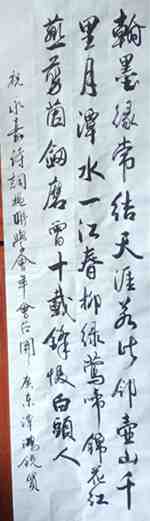 翰墨缘常结天涯若比邻壶山千
里月潭水一江春柳绿莺啼锦花红
燕剪茵剑磨曾十载锋慢白头人
祝永嘉诗词楹联学会年会召开 广东谭鸿锐贺